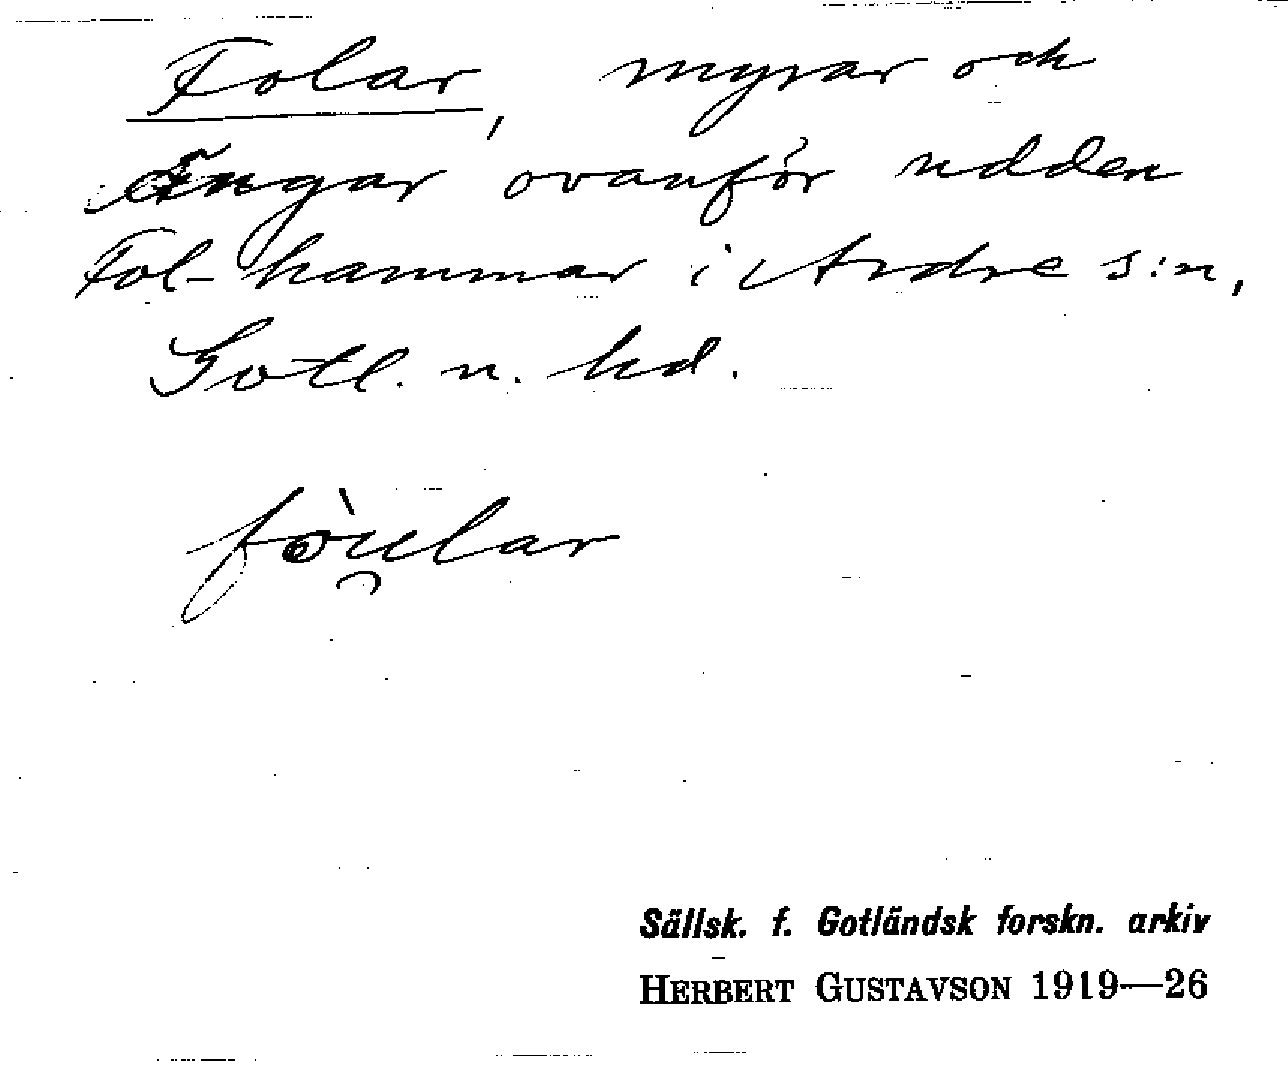 Folar, myrar och
Ängar ovanför udden
Fol-hammar i Ardre s:n,
Gotl. n. hd.
fòu̯lar
Sällsk. f. Gotländsk forskn. arkiv
HERBERT GUSTAVSON 1919—26